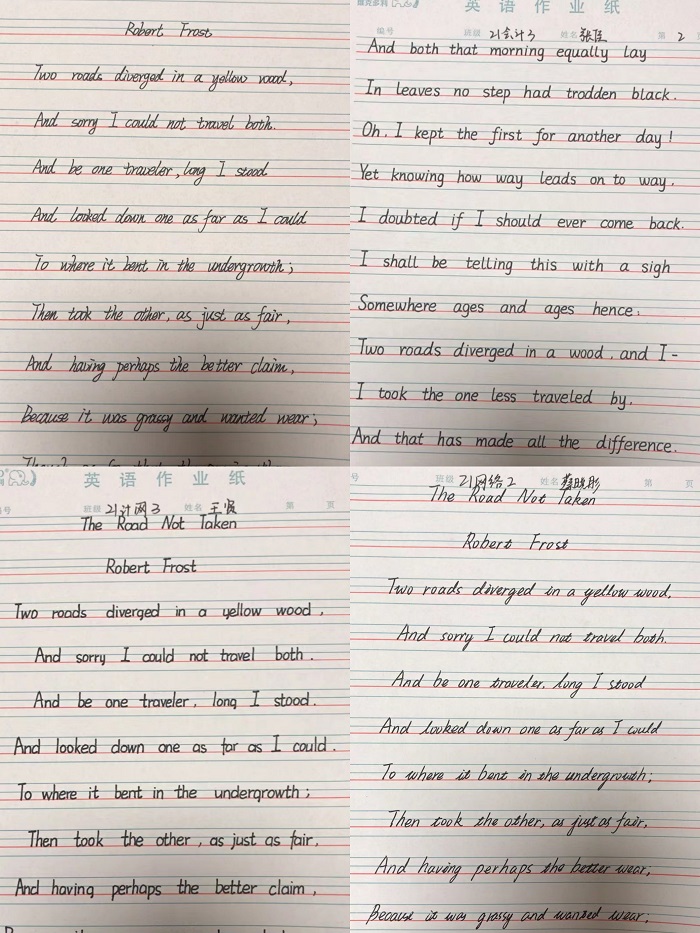 Robert Frost
Two roads diverged in a yellow wood,
And sorry I could not travel both.
And be one traveler, long I stood
And looked down one as far as I could
To where it bent in the undergrowth;
Then took the other, as just as fair,
And having perhaps the better claim,
Because it was grassy and wanted wear;
英语作业纸
编号 班级 21会计3 姓名 第 2 页
And both that morning equally lay
In leaves no step had trodden black.
Oh, I kept the first for another day!
Yet knowing how way leads on to way,
I doubted if I should ever come back.
I shall be telling this with a sigh
Somewhere ages and ages hence:
Two roads diverged in a wood, and I-
I took the one less traveled by,
And that has made all the difference.
英语作业纸
号 班级 21计网3 姓名 第 页
The Road Not Taken
Robert Frost
Two roads diverged in a yellow wood,
And sorry I could not travel both.
And be one traveler, long I stood.
And looked down one as far as I could.
To where it bent in the undergrowth;
Then took the other, as just as fair,
And having perhaps the better claim,
号 班级 21网络2 姓名 第 页
The Road Not Taken
Robert Frost
Two roads diverged in a yellow wood,
And sorry I could not travel both.
And be one traveler, long I stood
And looked down one as far as I could
To where it bent in the undergrowth;
Then took the other, as just as fair,
And having perhaps the better wear;
Because it was grassy and wanted wear;